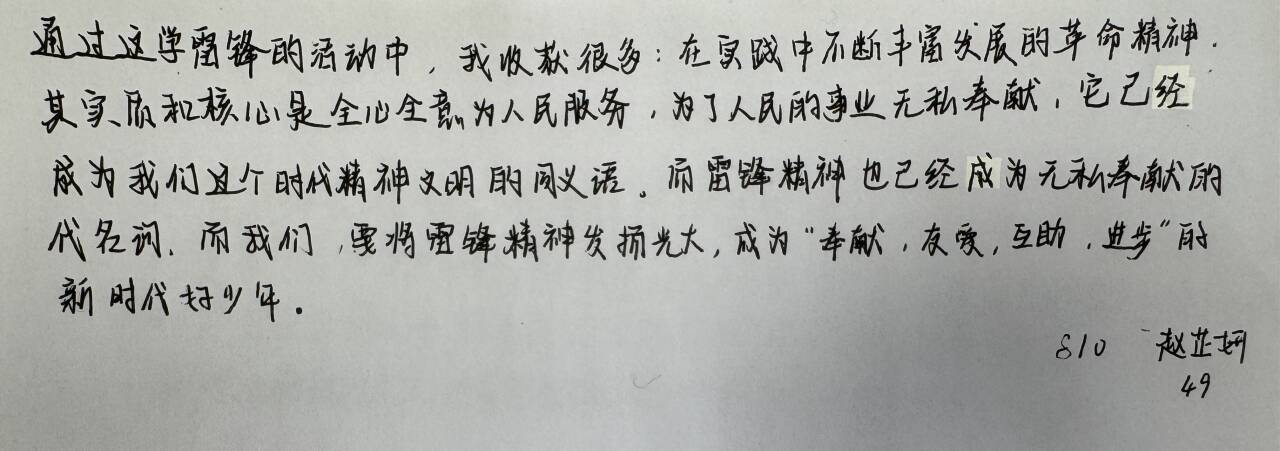 通过这学雷锋的活动中，我收获很多：在实践中不断丰富发展的革命精神.
其实质和核心是全心全意为人民服务，为了人民的事业无私奉献，它已经
成为我们这个时代精神文明的同义语。而雷锋精神也已经成为无私奉献的
代名词.而我们，要将雷锋精神发扬光大，成为“奉献，友爱，互助，进步”的
新时代好少年。
810 赵芷妍
49